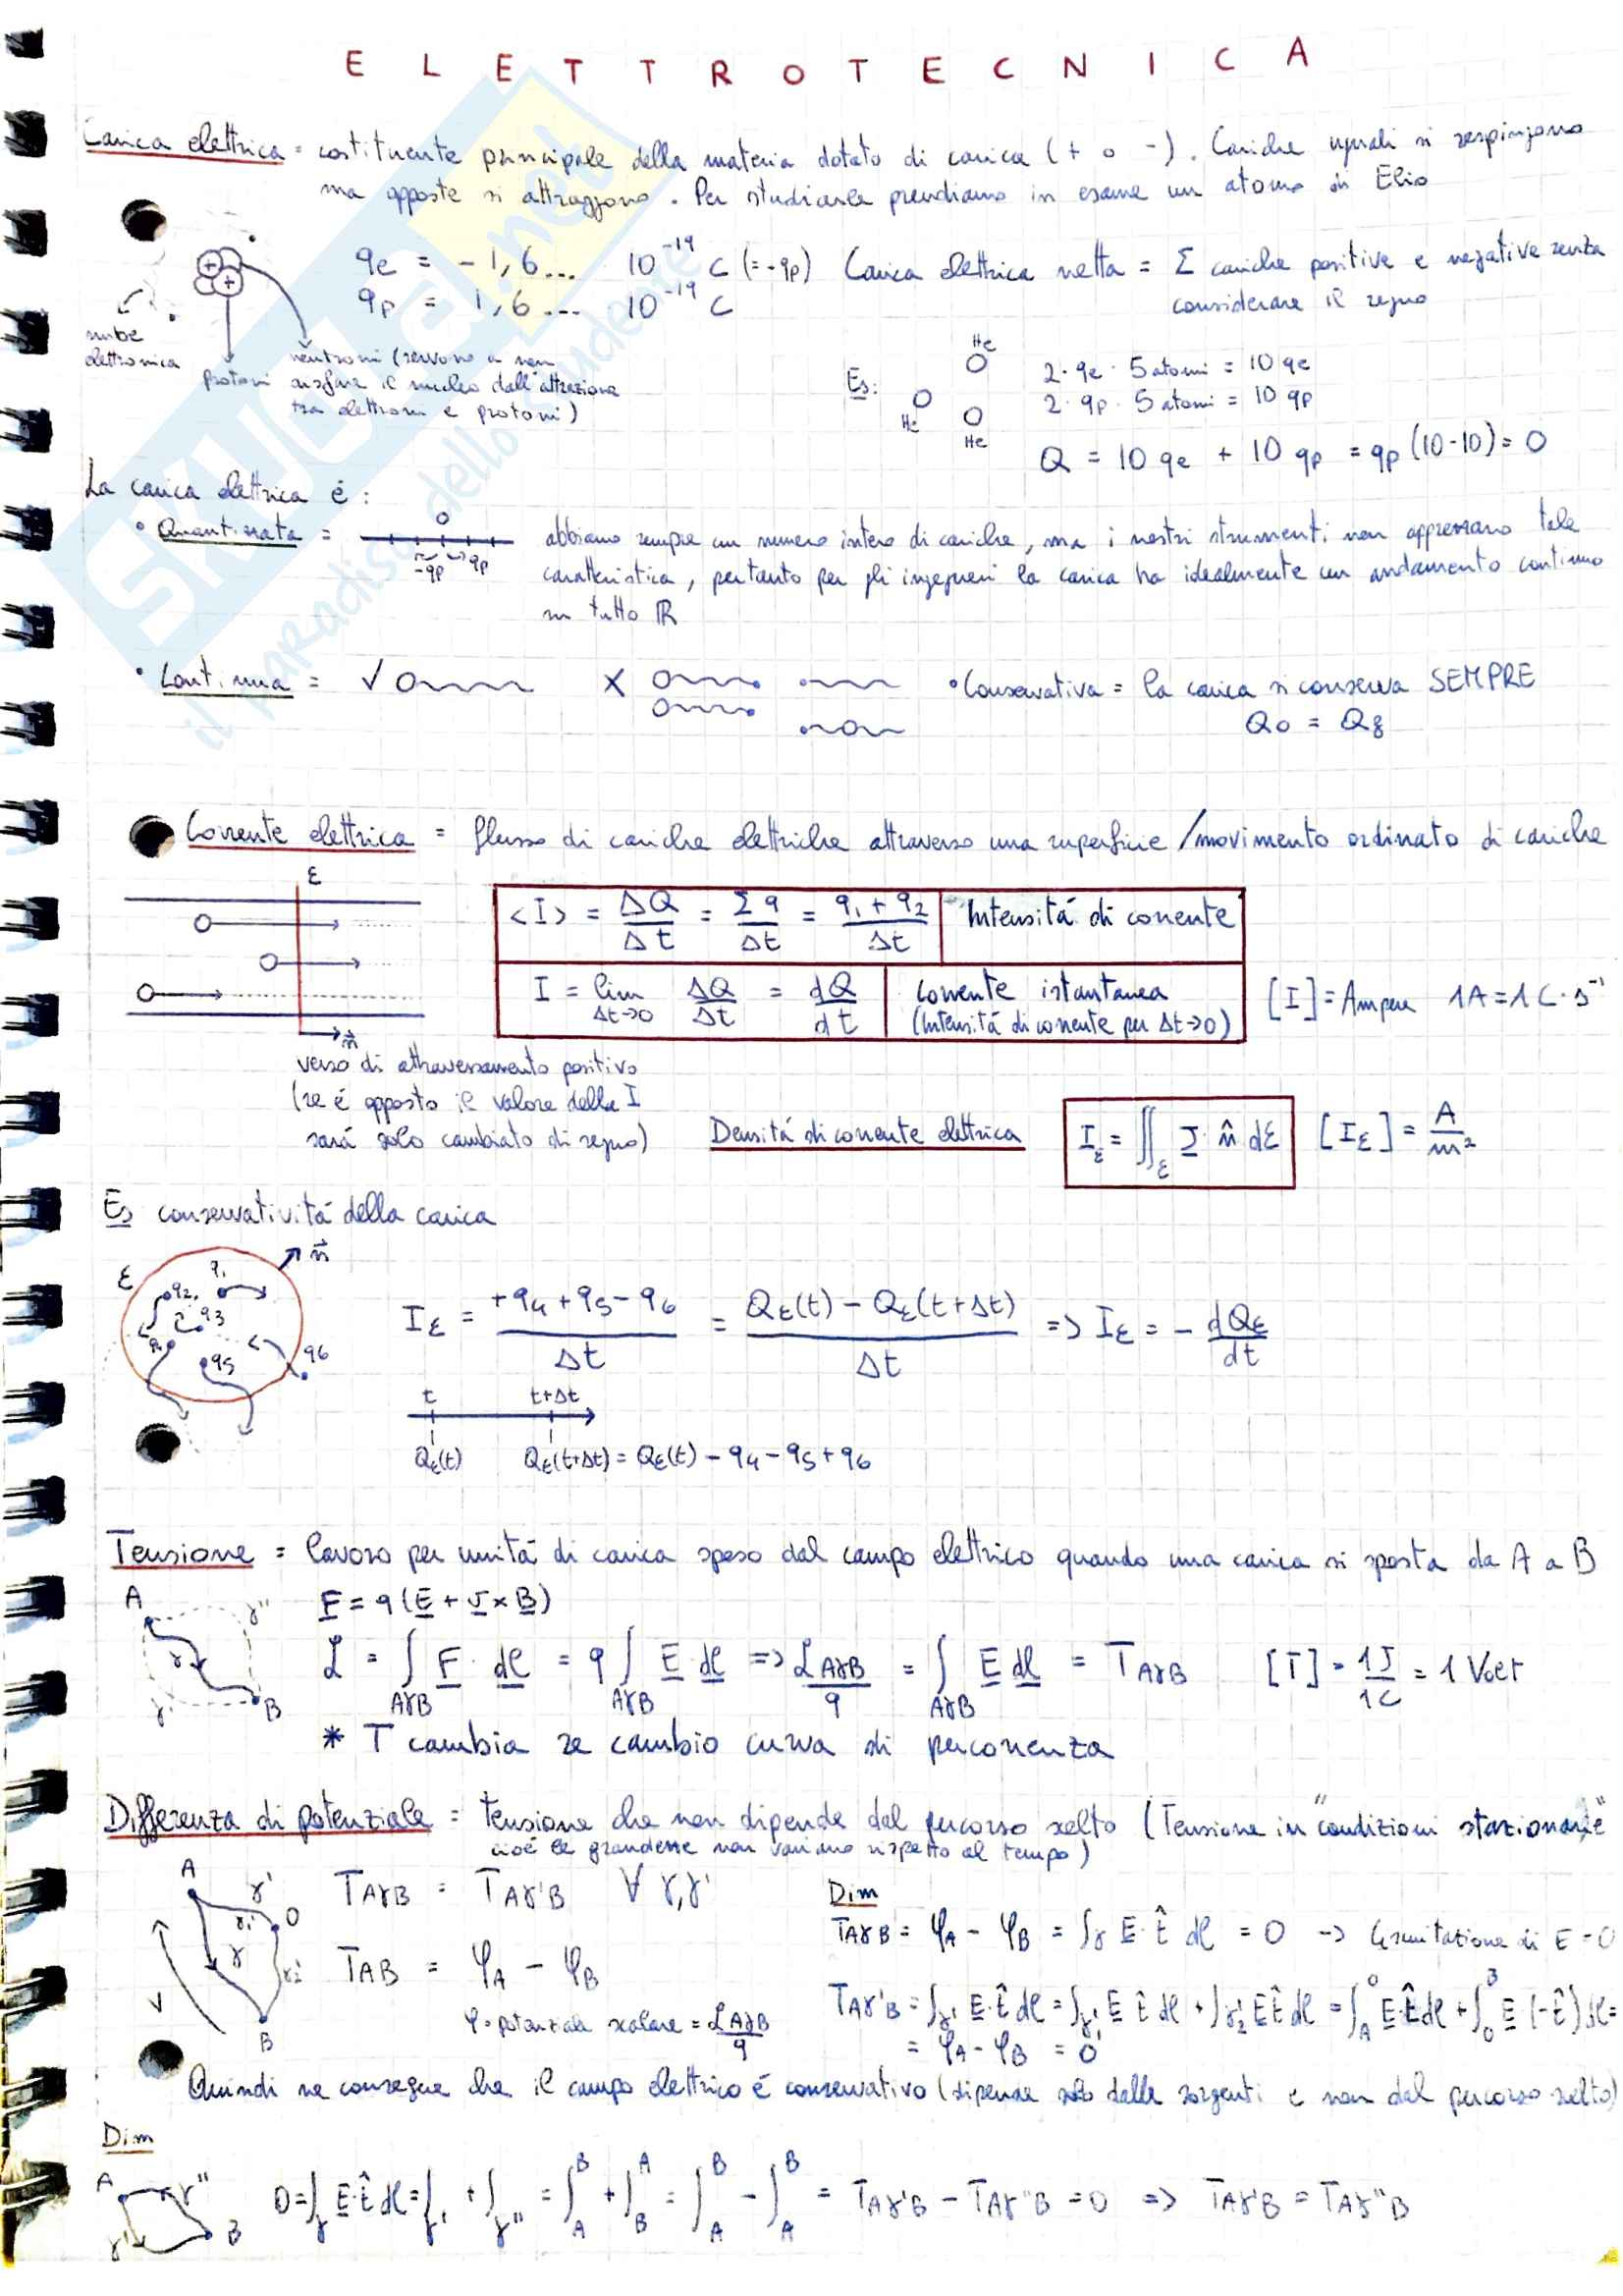 ELETTROTECNICA
Carica elettrica = costituente principale della materia dotato di carica (+ o -). Cariche uguali si respingono
ma opposte si attraggono. Per studiarla prendiamo in esame un atomo di Elio
qe = -1,6... 10⁻¹⁹ C (=-qp) Carica elettrica netta = Σ cariche positive e negative senza
qp = 1,6... 10⁻¹⁹ C considerare il segno
nube
elettronica
protoni
neutroni (servono a non
disfare il nucleo dall'attrazione
tra elettroni e protoni)
Es:
He
He
He
2·qe·5 atomi = 10 qe
2·qp·5 atomi = 10 qp
Q = 10 qe + 10 qp = qp (10-10) = 0
La carica elettrica é:
• Quantizzata =
0
-qp qp
abbiamo sempre un numero intero di cariche, ma i nostri strumenti non apprezzano tale
caratteristica, pertanto per gli ingegneri la carica ha idealmente un andamento continuo
su tutto ℝ
• Continua = ✓ X • Conservativa = la carica si conserva SEMPRE
Qo = Qf
Corrente elettrica = flusso di cariche elettriche attraverso una superficie / movimento ordinato di cariche
Σ
<I> = ΔQ/Δt = Σq/Δt = q₁+q₂/Δt Intensitá di corrente
I = lim Δt→0 ΔQ/Δt = dQ/dt Corrente istantanea
(Intensitá di corrente per Δt→0)
[I] = Ampere 1A = 1C·s⁻¹
n
verso di attraversamento positivo
(se é opposto il valore della I
sará solo cambiato di segno)
Densitá di corrente elettrica I_Σ = ∬_Σ J·n̂ dΣ [I_Σ] = A/m²
Es conservativitá della carica
Σ n
q₁ q₂ q₃ q₄ q₅ q₆
I_Σ = +q₄+q₅-q₆/Δt = Q_Σ(t) - Q_Σ(t+Δt)/Δt => I_Σ = - dQ_Σ/dt
t t+Δt
Q_Σ(t) Q_Σ(t+Δt) = Q_Σ(t) - q₄ - q₅ + q₆
Tensione = lavoro per unitá di carica speso dal campo elettrico quando una carica si sposta da A a B
A γ'' γ γ' B
F = q (E + v × B)
L = ∫_AγB F · dl = q ∫_AγB E · dl => L_AγB/q = ∫_AγB E dl = T_AγB [T] = 1J/1C = 1 Volt
* T cambia se cambio curva di percorrenza
Differenza di potenziale = tensione che non dipende dal percorso scelto (Tensione in "condizioni stazionarie"
cioé le grandezze non variano rispetto al tempo)
A γ' γ₁' O γ γ₂' V B
T_AγB = T_Aγ'B ∀ γ,γ'
T_AB = φ_A - φ_B
φ = potenziale scalare = L_AγB/q
Dim
T_AγB = φ_A - φ_B = ∫γ E·t̂ dl = 0 -> Circuitazione di E = 0
T_Aγ'B = ∫γ' E·t̂ dl = ∫γ₁' E t̂ dl + ∫γ₂' E t̂ dl = ∫_A^O E·t̂ dl + ∫_O^B E (-t̂) dl =
= φ_A - φ_B = 0
Quindi ne consegue che il campo elettrico é conservativo (dipende solo dalle sorgenti e non dal percorso scelto)
Dim
A γ'' γ' B
0 = ∫γ E·t̂ dl = ∫γ' + ∫γ'' = ∫_A^B + ∫_B^A = ∫_A^B - ∫_A^B = T_Aγ'B - T_Aγ''B = 0 => T_Aγ'B = T_Aγ''B
SKUOla.net
il paradiso dello studente